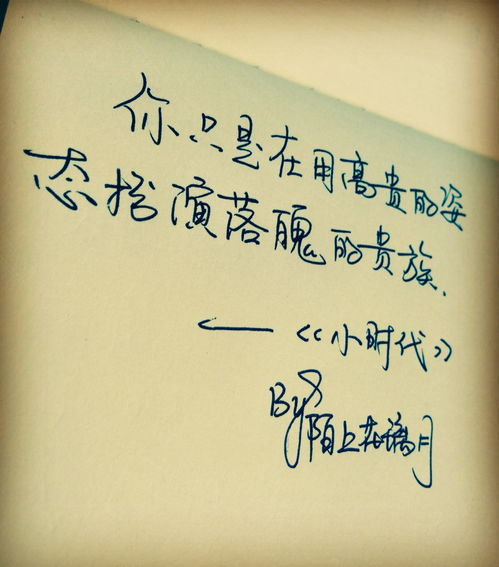 你只是在用高贵的姿
态扮演落魄的贵族.
——《小时代》
By 陌上花月